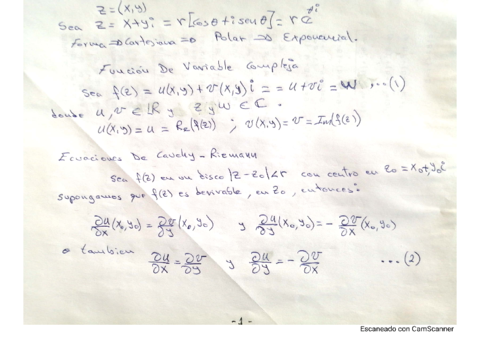 z = (x,y)
Sea z = x + yi = r[cosθ + i senθ] = r e^θi
Forma ⇒ Cartesiana ⇒ Polar ⇒ Exponencial.
Función De Variable Compleja
Sea f(z) = u(x,y) + v(x,y)i = = u + vi = w ...(1)
donde u, v ∈ ℝ y z y w ∈ ℂ.
u(x,y) = u = Re(f(z)) ; v(x,y) = v = Im(f(z))
Ecuaciones De Cauchy - Riemann
Sea f(z) en un disco |z - z0| < r con centro en z0 = x0 + y0i
supongamos que f(z) es derivable, en z0, entonces:
∂u/∂x (x0, y0) = ∂v/∂y (x0, y0) y ∂u/∂y (x0, y0) = - ∂v/∂x (x0, y0)
o tambien ∂u/∂x = ∂v/∂y y ∂u/∂y = - ∂v/∂x ...(2)
-1-
Escaneado con CamScanner